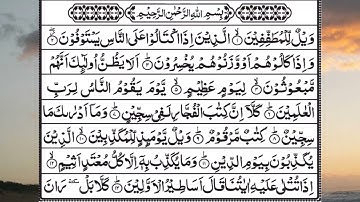 بِسْمِ اللهِ الرَّحْمٰنِ الرَّحِيْمِ
وَيْلٌ لِّلْمُطَفِّفِيْنَ ۙ۝۱ الَّذِيْنَ اِذَا اكْتَالُوْا عَلَى النَّاسِ يَسْتَوْفُوْنَ ۖ۝۲
وَاِذَا كَالُوْهُمْ اَوْ وَّزَنُوْهُمْ يُخْسِرُوْنَ ۝۳ اَلَا يَظُنُّ اُولٰٓئِكَ اَنَّهُمْ
مَّبْعُوْثُوْنَ ۙ۝۴ لِيَوْمٍ عَظِيْمٍ ۙ۝۵ يَّوْمَ يَقُوْمُ النَّاسُ لِرَبِّ
الْعٰلَمِيْنَ ۝۶ كَلَّآ اِنَّ كِتٰبَ الْفُجَّارِ لَفِيْ سِجِّيْنٍ ۝۷ وَمَآ اَدْرٰىكَ مَا
سِجِّيْنٌ ۝۸ كِتٰبٌ مَّرْقُوْمٌ ۝۹ وَيْلٌ يَّوْمَئِذٍ لِّلْمُكَذِّبِيْنَ ۝۱۰ الَّذِيْنَ
يُكَذِّبُوْنَ بِيَوْمِ الدِّيْنِ ۝۱۱ وَمَا يُكَذِّبُ بِهٖٓ اِلَّا كُلُّ مُعْتَدٍ اَثِيْمٍ ۝۱۲
اِذَا تُتْلٰى عَلَيْهِ اٰيٰتُنَا قَالَ اَسَاطِيْرُ الْاَوَّلِيْنَ ۝۱۳ كَلَّا بَلْ ٚ رَانَ